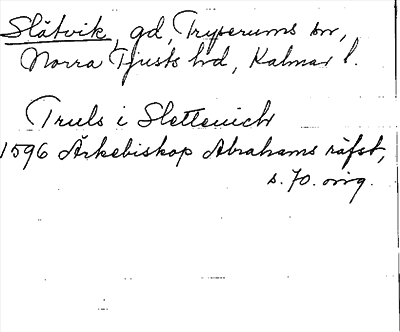 Slätvik, gd, Tryserums sn,
Norra Tjusts hd, Kalmar l.
Truls i Sletteuich
1596 Ärkebiskop Abrahams räfst,
s. 70. orig.